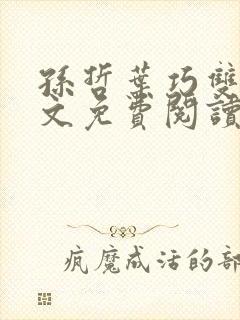 孫哲葉巧雙
文免費閱讀
疯魔成活的部